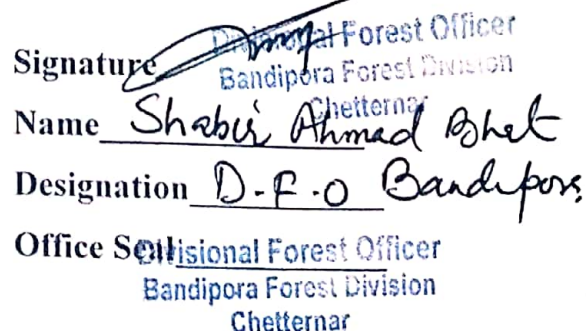 Divisional Forest Officer
Signature
Bandipora Forest Division
Chetternar
Name Shabir Ahmad Bhat
Designation D.F.O Bandipora
Office Seal
Divisional Forest Officer
Bandipora Forest Division
Chetternar